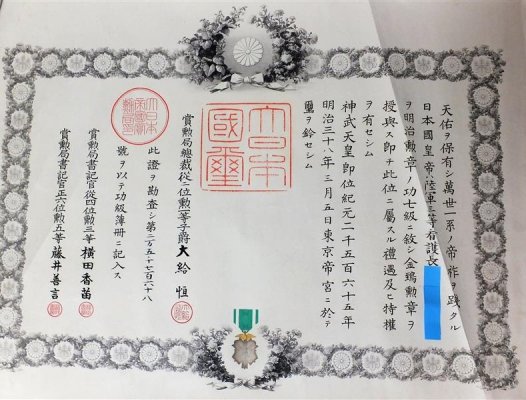 天佑ヲ保有シ萬世一系ノ帝祚ヲ踐タル
日本國皇帝ハ陸軍三等看護長
ヲ明治勲章ノ功七級ニ敍シ金鵄勲章ヲ
授與ス即チ此位ニ屬スル禮遇及ヒ特權
ヲ有セシム
神武天皇即位紀元二千五百六十五年
明治三十八年三月五日東京帝宮ニ於テ
璽ヲ鈐セシム
大日本國璽
賞勲局總裁從二位勲一等子爵大給恒
此證ヲ勘査シ第二万五千七百六十八
號ヲ以テ功級簿册ニ記入ス
賞勲局書記官從四位勲三等横田香苗
賞勲局書記官正六位勲五等藤井善言